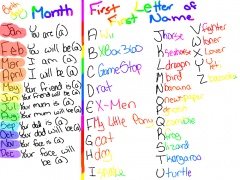 Birth Month
First Letter of First Name
Jan You are (a)
Feb You will be (a)
March I am (a)
April I will be (a)
May Your friend is (a)
Jun Your friend will be (a)
July Your mom is (a)
Aug Your mum will be (a)
Sep Your dad is (a)
Oct Your dad will be (a)
Nov Your face is (a)
Dec Your face will be (a)
A Wii
B XBox360
C GameStop
D rat
E X-Men
F My Little Pony
G oat
H am
J horse
K seahorse
L dragon
M bird
N banana
O newspaper
P
Q
R frog
S lizard
T Kangaroo
U turtle
V fighter
W loner
X lover
Y
Z